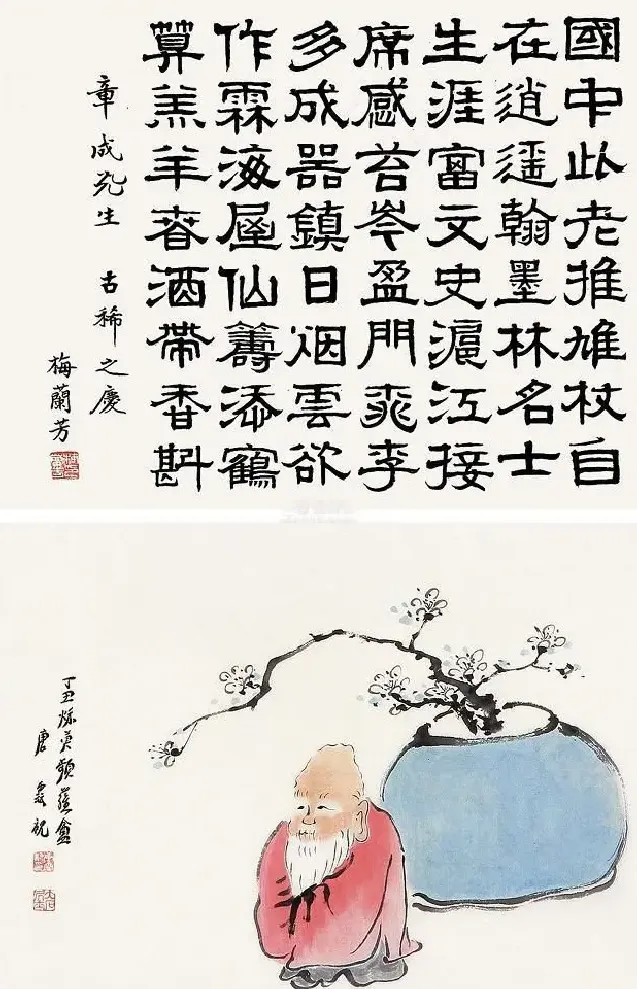 國中此老推雄杖自
在逍遙翰墨林名士
生涯富文史滬江接
席感苔岑盈門桃李
多成器鎮日烟雲欲
作霖海屋仙籌添鶴
算羔羊春酒帶香斟
章成先生 古稀之慶
梅蘭芳
丁丑
唐祝